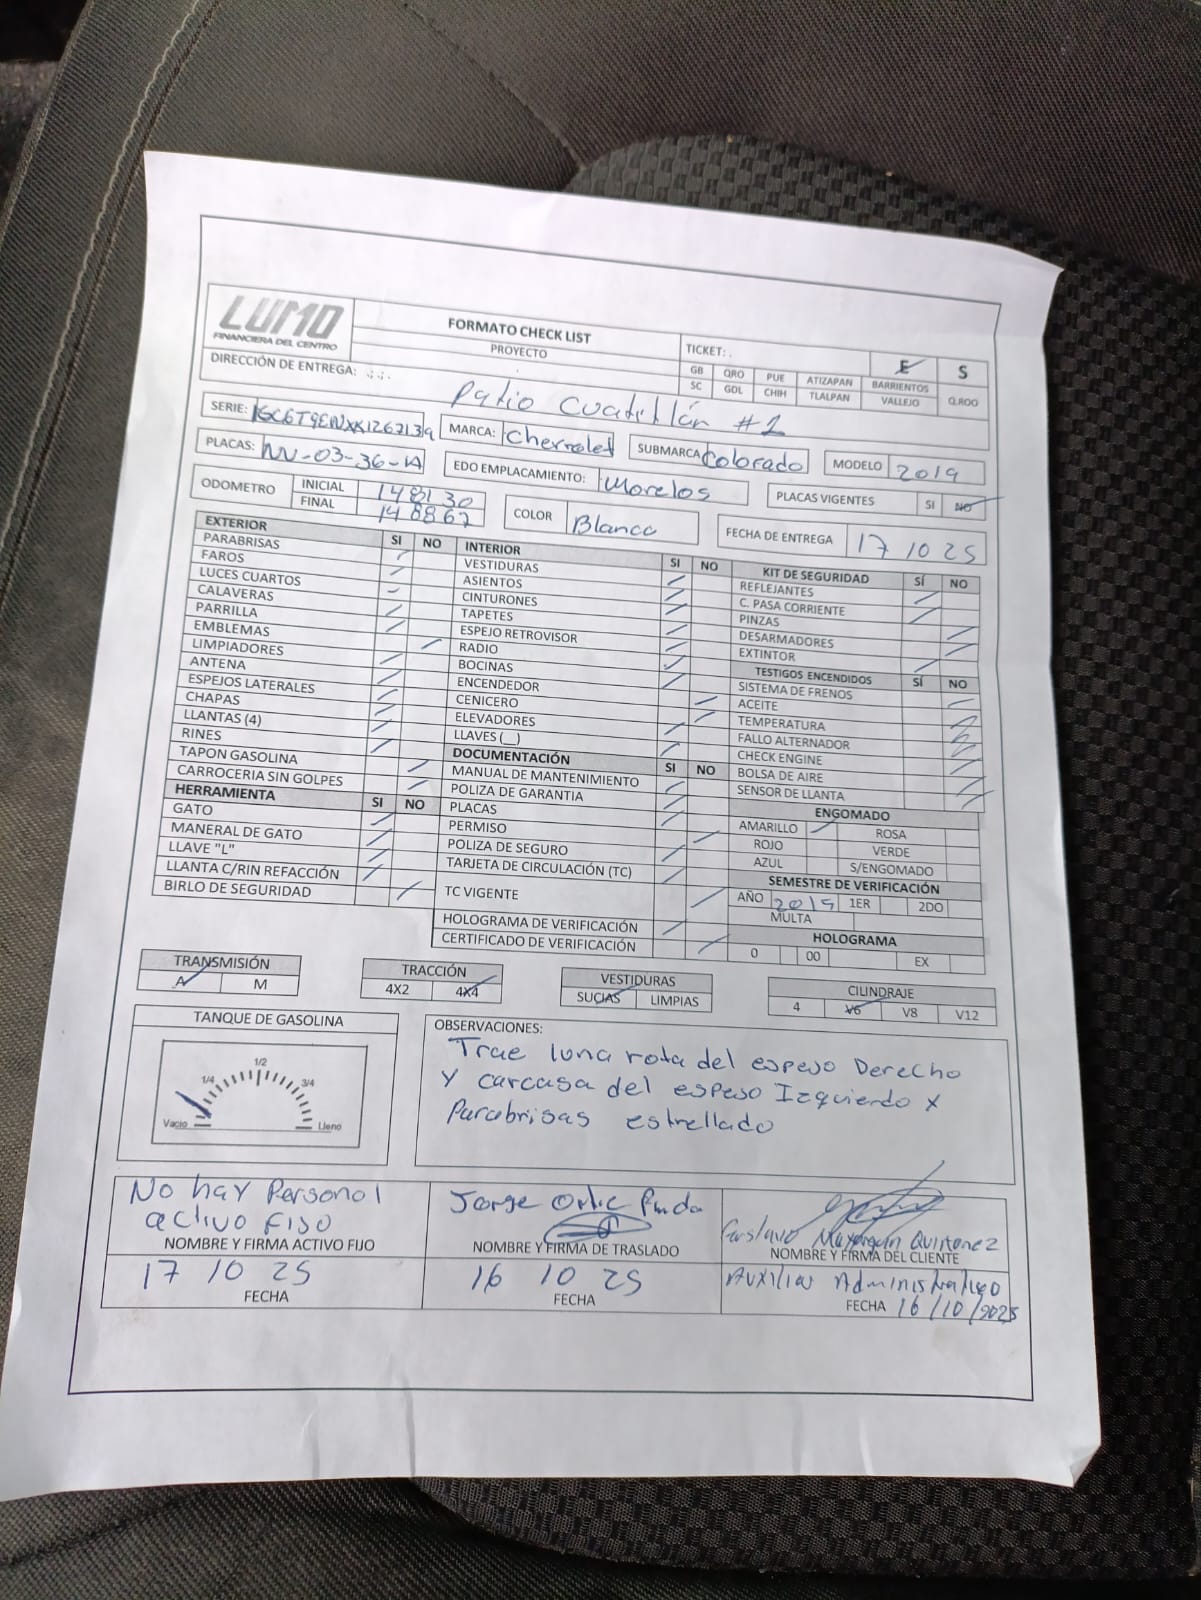 LUMO
FINANCIERA DEL CENTRO
FORMATO CHECK LIST
PROYECTO
TICKET: .
E S
GB QRO PUE ATIZAPAN BARRIENTOS Q.ROO
SC GDL CHIH TLALPAN VALLEJO
DIRECCIÓN DE ENTREGA: Patio Cuatitlán #1
SERIE: MARCA: Chevrolet SUBMARCA Colorado MODELO 2019
PLACAS: NV-03-36-A EDO EMPLACAMIENTO: Morelos PLACAS VIGENTES SI NO
ODOMETRO INICIAL 148130
FINAL 148867
COLOR Blanco FECHA DE ENTREGA 17 10 25
EXTERIOR SI NO
PARABRISAS
FAROS
LUCES CUARTOS
CALAVERAS
PARRILLA
EMBLEMAS
LIMPIADORES
ANTENA
ESPEJOS LATERALES
CHAPAS
LLANTAS (4)
RINES
TAPON GASOLINA
CARROCERIA SIN GOLPES
HERRAMIENTA SI NO
GATO
MANERAL DE GATO
LLAVE "L"
LLANTA C/RIN REFACCIÓN
BIRLO DE SEGURIDAD
INTERIOR SI NO
VESTIDURAS
ASIENTOS
CINTURONES
TAPETES
ESPEJO RETROVISOR
RADIO
BOCINAS
ENCENDEDOR
CENICERO
ELEVADORES
LLAVES (__)
DOCUMENTACIÓN SI NO
MANUAL DE MANTENIMIENTO
POLIZA DE GARANTIA
PLACAS
PERMISO
POLIZA DE SEGURO
TARJETA DE CIRCULACIÓN (TC)
TC VIGENTE
HOLOGRAMA DE VERIFICACIÓN
CERTIFICADO DE VERIFICACIÓN
KIT DE SEGURIDAD SÍ NO
REFLEJANTES
C. PASA CORRIENTE
PINZAS
DESARMADORES
EXTINTOR
TESTIGOS ENCENDIDOS SÍ NO
SISTEMA DE FRENOS
ACEITE
TEMPERATURA
FALLO ALTERNADOR
CHECK ENGINE
BOLSA DE AIRE
SENSOR DE LLANTA
ENGOMADO
AMARILLO ROSA
ROJO VERDE
AZUL S/ENGOMADO
SEMESTRE DE VERIFICACIÓN
AÑO 2019 1ER 2DO
MULTA
HOLOGRAMA
0 00 EX
TRANSMISIÓN
A M
TRACCIÓN
4X2 4X4
VESTIDURAS
SUCIAS LIMPIAS
CILINDRAJE
4 V6 V8 V12
TANQUE DE GASOLINA
1/2
1/4 3/4
Vacio Lleno
OBSERVACIONES:
Trae luna rota del espejo Derecho
Y carcasa del espejo Izquierdo x
Parabrisas estrellado
No hay Personal
activo Fijo
NOMBRE Y FIRMA ACTIVO FIJO
17 10 25
FECHA
Jorge
NOMBRE Y FIRMA DE TRASLADO
16 10 25
FECHA
Gustavo Mayorquin Quiñonez
NOMBRE Y FIRMA DEL CLIENTE
Auxiliar Administrativo
FECHA 16/10/2025